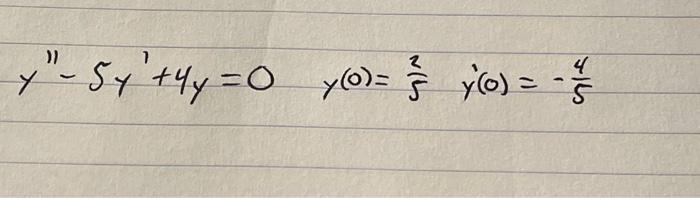 y'' - 5y' + 4y = 0 y(0) = 2/5 y'(0) = - 4/5